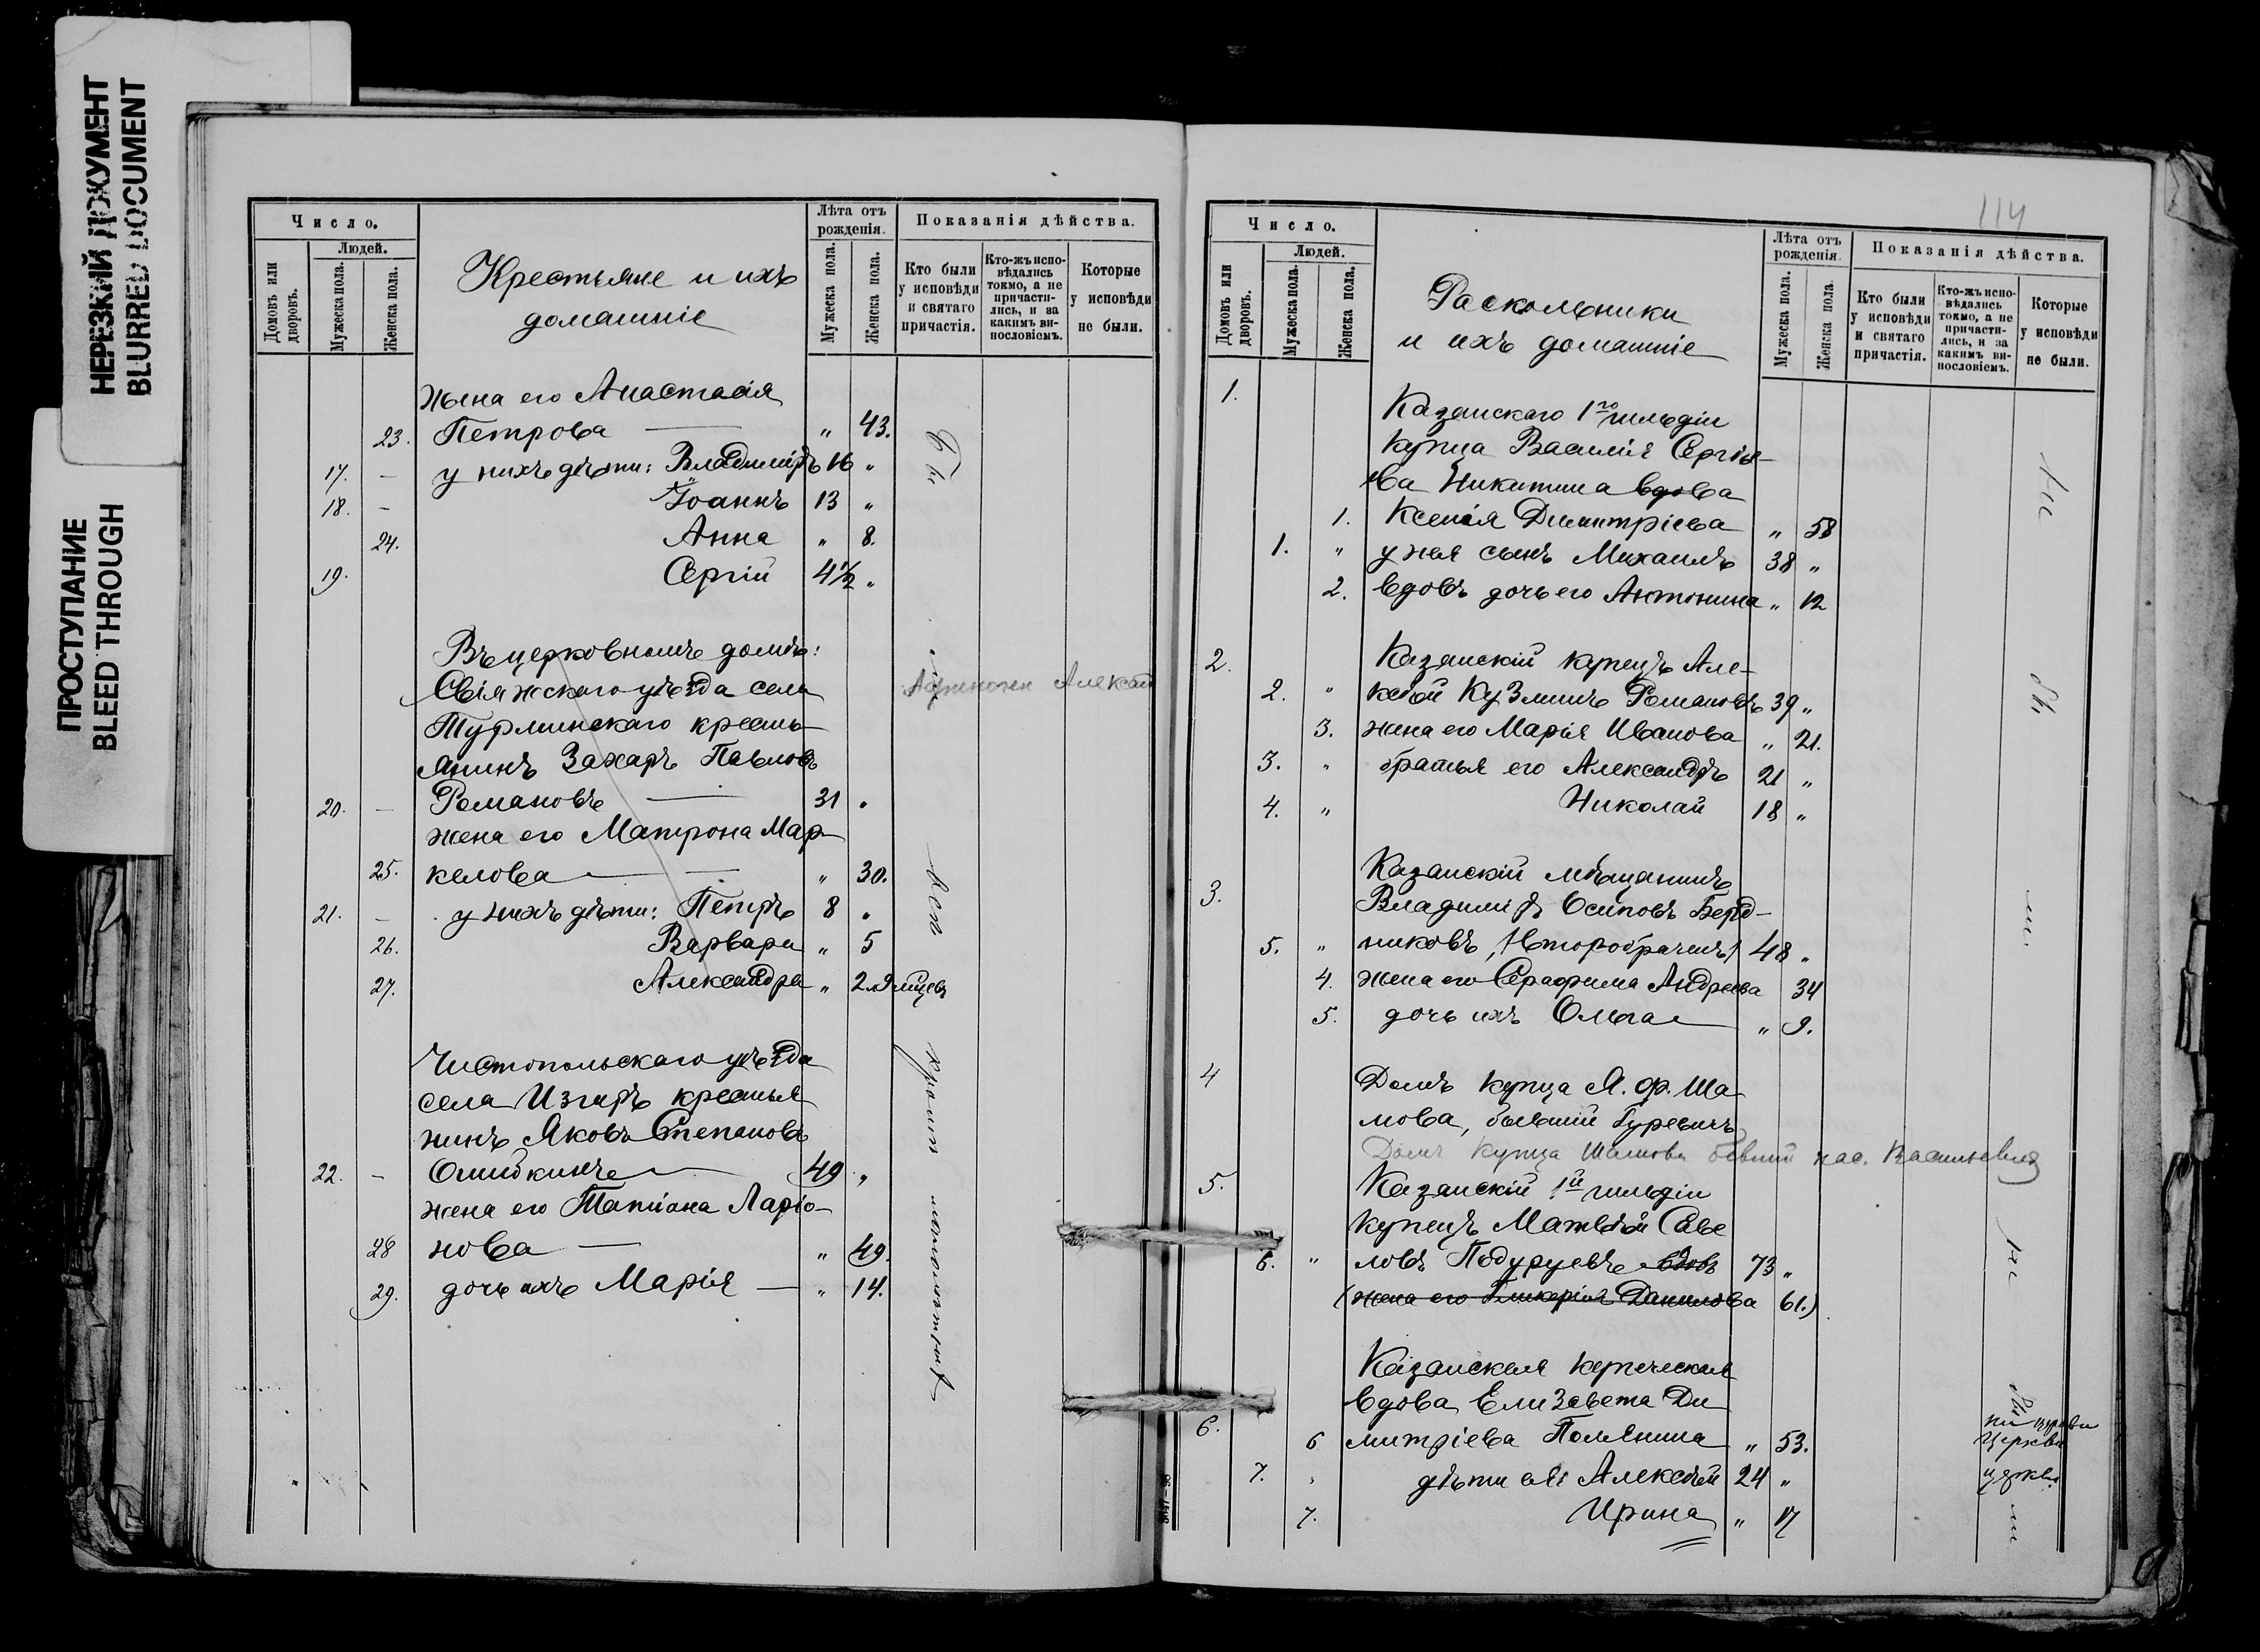 НЕРЕЗКИЙ ДОКУМЕНТ
BLURRED DOCUMENT
ПРОСТУПАНИЕ
BLEED THROUGH
Число.
Людей.
Домовъ или дворовъ.
Мужеска пола.
Женска пола.
Крестьяне и ихъ
домашніе
Лѣта отъ рожденія.
Мужеска пола.
Женска пола.
Показанія дѣйства.
Кто были у исповѣди и святаго причастія.
Кто-жъ исповѣдались токмо, а не причастились, и за какимъ винословіемъ.
Которые у исповѣди не были.
жена его Анастасія
23. Петрова — " 43.
17. - у нихъ дѣти: Владиміръ 16 "
18. - Іоаннъ 13 "
24. Анна " 8.
19. Сергій 4½ "
Въ церковномъ домѣ:
Свіяжскаго уѣзда села
Турминскаго кресть-
янинъ Захаръ Павловъ
20. - Романовъ — 31 "
жена его Матрона Мар-
25. келова — " 30.
21. - у нихъ дѣти: Петръ 8 "
26. Варвара " 5
27. Александра " 2.
Чистопольскаго уѣзда
села Изгаръ крестья-
нинъ Яковъ Степановъ
22. - Ошибкинъ 49 "
жена его Татіана Ларіо-
28 нова — " 49.
29. дочь ихъ Марія — " 14.
Бы
ли
всѣ
114
Число.
Людей.
Домовъ или дворовъ.
Мужеска пола.
Женска пола.
Раскольники
и ихъ домашніе
Лѣта отъ рожденія.
Мужеска пола.
Женска пола.
Показанія дѣйства.
Кто были у исповѣди и святаго причастія.
Кто-жъ исповѣдались токмо, а не причастились, и за какимъ винословіемъ.
Которые у исповѣди не были.
1.
Казанскаго 1го гильдіи
купца Василія Сергіе-
ва Никитина вдова
1. Ксенія Димитріева " 58
1. " у нея сынъ Михаилъ 38 "
2. вдовъ дочь его Антонина " 12
2. Казанскій купецъ Але-
2. " ксѣй Кузминъ Романовъ 39 "
3. жена его Марія Иванова " 21.
3. " братья его Александръ 21 "
4. " Николай 18 "
Казанскій мѣщанинъ
3. Владиміръ Осиповъ Берд-
5. " никовъ, (второбрачный) 48 "
4. жена его Серафима Андреева 34
5. дочь ихъ Ольга " 9.
4 Домъ купца Я. Ф. Ша-
мова, бывшій Гуревичъ
Домъ купца Шамова бывшій нас. Васильевыхъ
5. Казанскій 1й гильдіи
купецъ Матвѣй Саве
6. " ловъ Подуруевъ вдовъ 73 "
(жена его Гликерія Данилова 61.)
Казанская купеческая
вдова Елизавета Ди
6. 6 митріева " 53.
7. " дѣти ея: Алексѣй 24 "
7. Ирина " 17
церкви